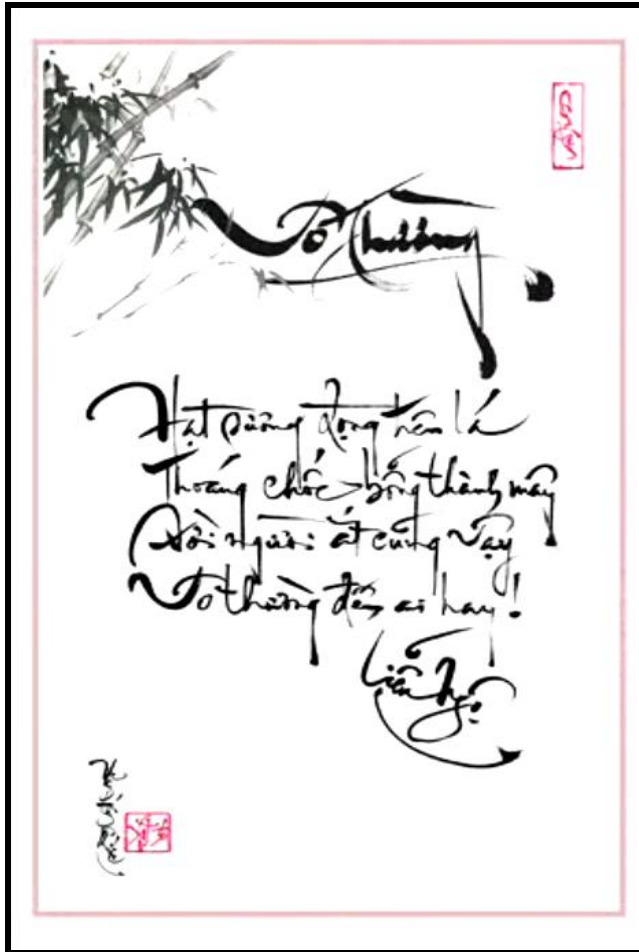 Vô Thường
Hạt sương đọng trên lá
Thoáng chốc bỗng thành mây
Đời người ắt cũng vậy
Vô thường đến ai hay!